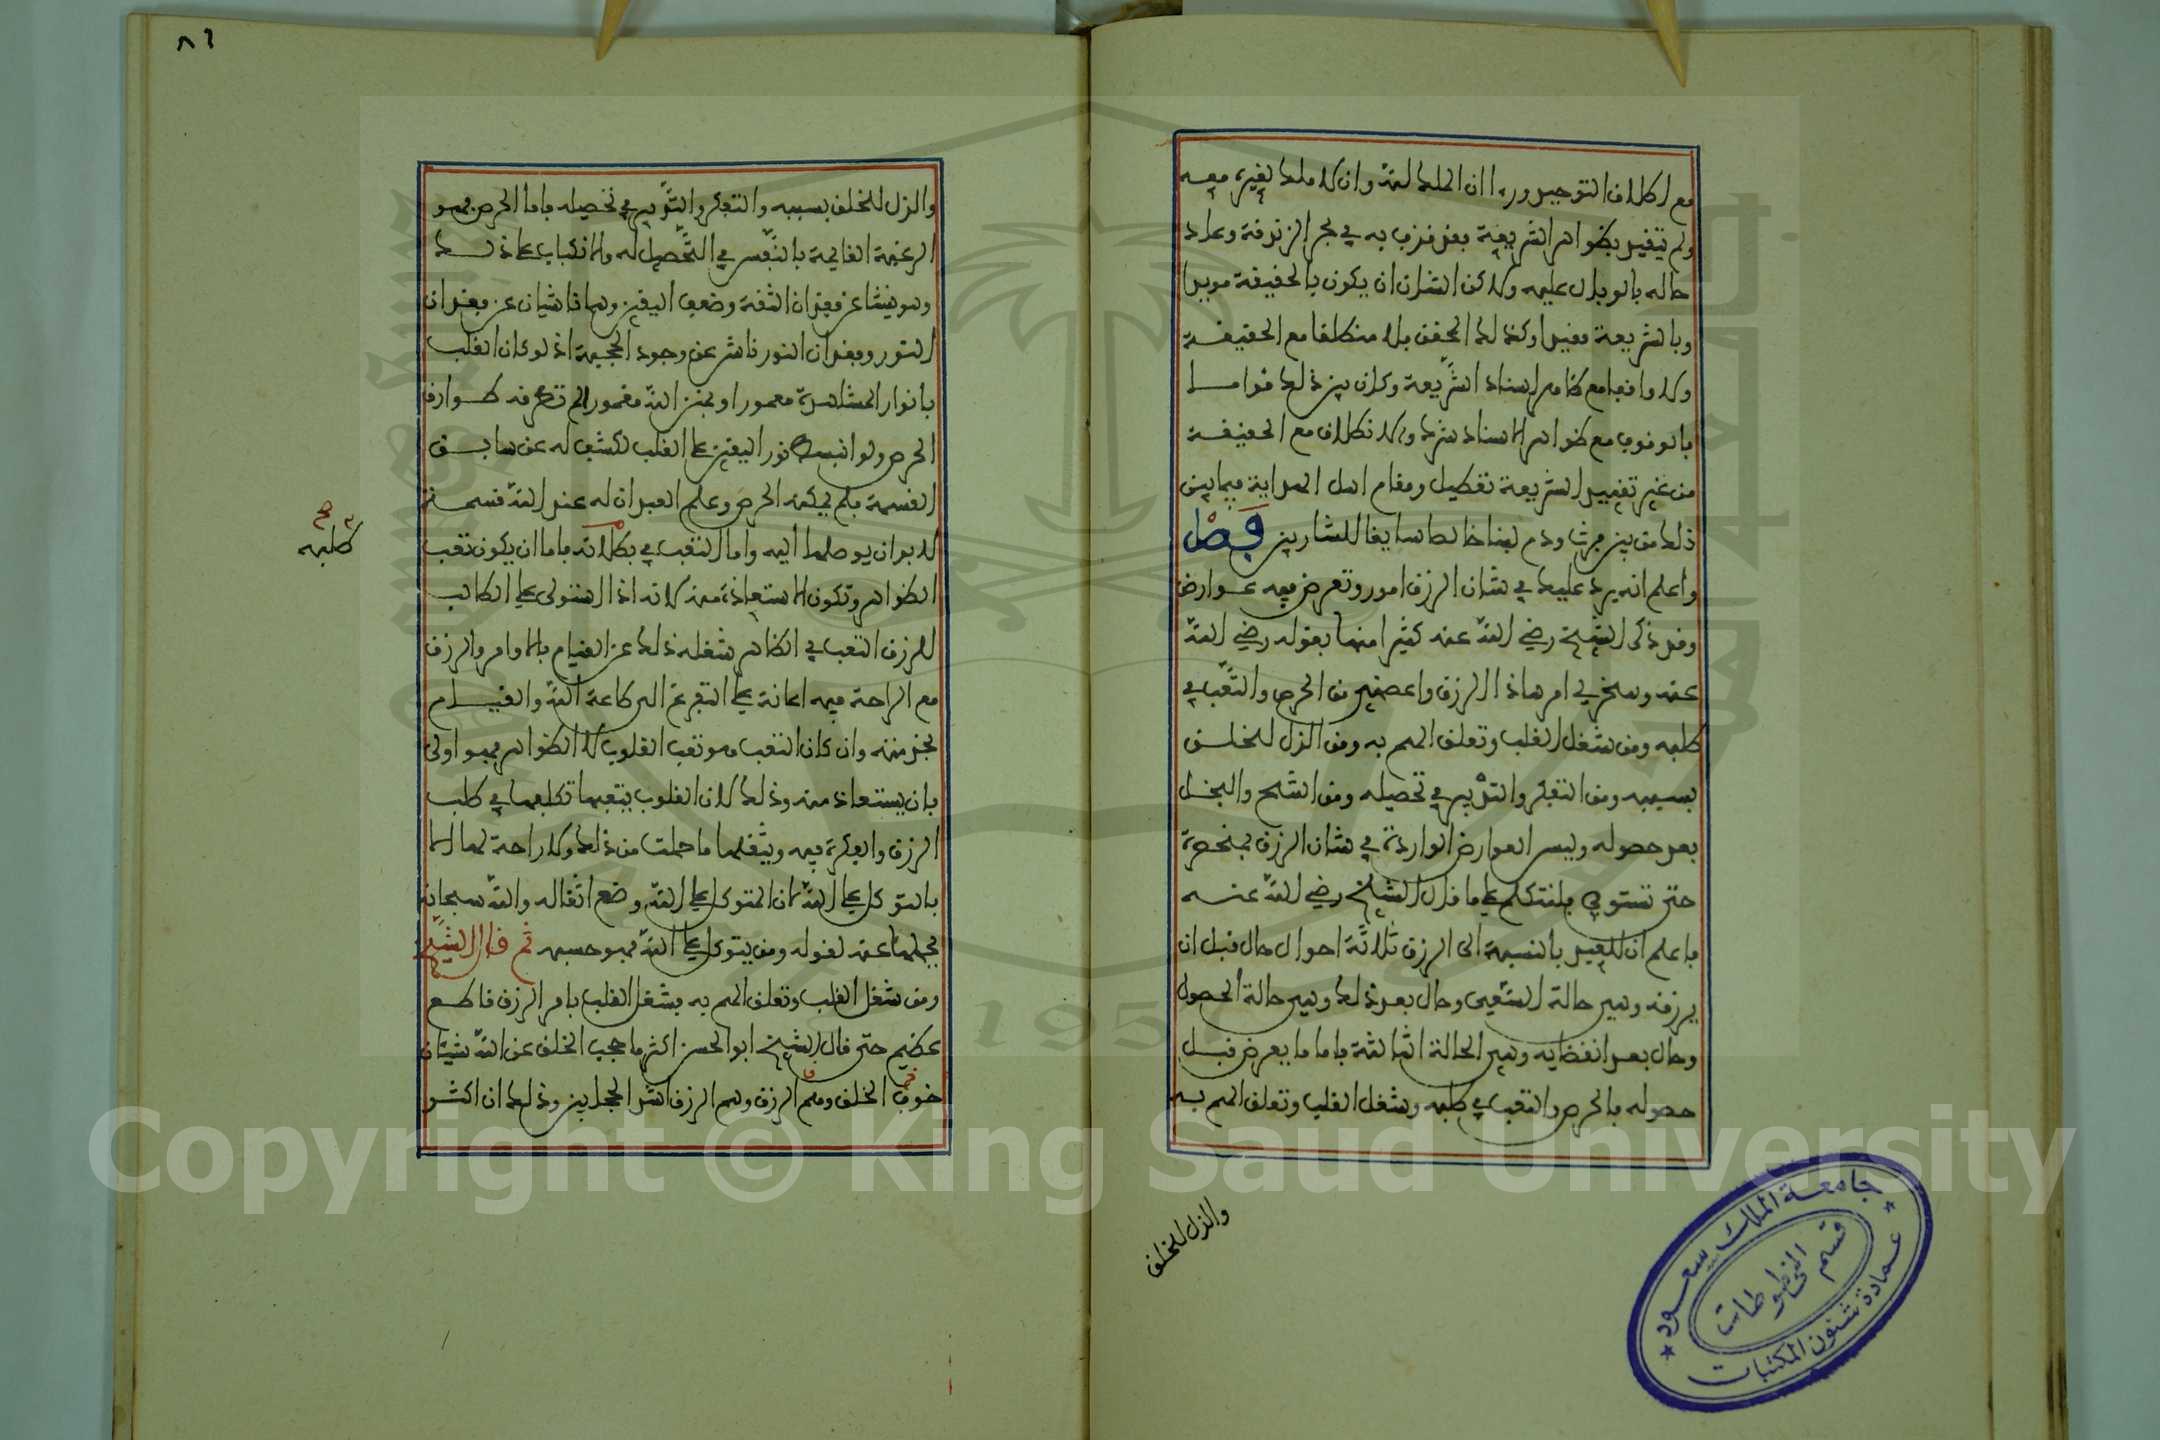 مع اطلاق التوحيد ورءا ان الملك لله وان لا ملك لغيره معه
ولم يتقيد بظواهر الشريعة فقد قذف به في بحر الزندقة وعاد
حاله بالوبال عليه ولاكن الشان ان يكون بالحقيقة مويدا
وبالشريعة مقيدا وكذلك المحقق فلا منطلقا مع الحقيقة
ولا واقفا مع ظاهر اسناد الشريعة وكان بين ذلك قواما
فالوقوف مع ظواهر الاسناد شرك والانطلاق مع الحقيقة
من غير تقييد الشريعة تعطيل ومقام اهل الهداية فيما بين
ذلك من بين فرث ودم لبنا خالصا سايغا للشاربين فصل
واعلم انه يرد عليك في شان الرزق امور وتعرض فيه عوارض
وقد ذكر الشيخ رضي الله عنه كثيرا منها بقوله رضي الله
عنه وسخر لي امر هاذا الرزق واعصمني من الحرص والتعب في
طلبه ومن شغل القلب وتعلق الهم به ومن الذل للخلق
بسببه ومن التفكر والتدبير في تحصيله ومن الشح والبخل
بعد حصوله وليس العوارض الواردة في شان الرزق بمنحصرة
حتى تستوفى فلنتكلم على ما قال الشيخ رضي الله عنه
فاعلم ان للعبد بالنسبة الى الرزق ثلاثة احوال حال قبل ان
يرزقه وهي حالة السعي وحال بعد ذلك وهي حالة الحصول
وحال بعد انقضايه وهي الحالة الثالثة فاما ما يعرض قبل
حصوله فالحرص والتعب في طلبه وشغل القلب وتعلق الهم به
والذل للخلق
٨٦
والذل للخلق بسببه والتفكر والتدبير في تحصيله فاما الحرص فهو
الرغبة القايمة بالنفس في التحصيل له والانكباب على ذلك
وهو ينشا عن فقدان الثقة وضعف اليقين وهما ناشيان عن فقدان
النور وفقدان النور ناش عن وجود الحجبة اذ لو كان القلب
بانوار المشاهدة معمورا وبمنن الله مغمورا لم تطرقه طوارق
الحرص ولو انبسط نور اليقين على القلب لكشف له عن سابق
القسمة فلم يمكنه الحرص وعلم العبد ان له عند الله قسمة
لابد ان يوصلها اليه واما التعب في طلبه فاما ان يكون تعب
الظواهر وتكون الاستعاذة منه لانه اذا استولى على الطالب
للرزق التعب في الظاهر شغله ذلك عن القيام بالاوامر والرزق
مع الراحة فيه اعانة على التفرغ الى طاعة الله والقيام
بخدمته وان كان التعب هو تعب القلوب لا الظواهر فهو اولى
بان يستعاذ منه وذلك لان القلوب يتعبها تطلبها في طلب
الرزق والفكرة فيه ويثقلها ما حملت من ذلك ولا راحة لها الا
بالتوكل على الله لان المتوكل على الله وضع اثقاله والله سبحانه
يحملها عنه لقوله ومن يتوكل على الله فهو حسبه ثم قال الشيخ
ومن شغل القلب وتعلق الهم به فشغل القلب بامر الرزق قاطع
عظيم حتى قال الشيخ ابو الحسن اكثر ما حجب الخلق عن الله شيئان
خوف الخلق وهم الرزق وهم الرزق اشد الحجابين وذلك ان اكثر
طلبه
صح
جامعة الملك سعود
قسم المخطوطات
عمادة شئون المكتبات
1957
Copyright © King Saud University